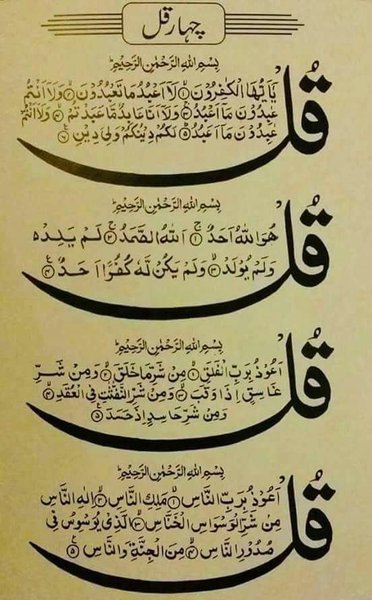 چہار قل
بِسْمِ اللهِ الرَّحْمٰنِ الرَّحِيْمِ
قُلْ
يٰۤاَيُّهَا الْكٰفِرُوْنَ ۱ لَاۤ اَعْبُدُ مَا تَعْبُدُوْنَ ۲ وَلَاۤ اَنْتُمْ
عٰبِدُوْنَ مَاۤ اَعْبُدُ ۳ وَلَاۤ اَنَا عَابِدٌ مَّا عَبَدْتُّمْ ۴ وَلَاۤ اَنْتُمْ
عٰبِدُوْنَ مَاۤ اَعْبُدُ ۵ لَكُمْ دِيْنُكُمْ وَلِيَ دِيْنِ ۶
بِسْمِ اللهِ الرَّحْمٰنِ الرَّحِيْمِ
قُلْ
هُوَ اللهُ اَحَدٌ ۱ اَللهُ الصَّمَدُ ۲ لَمْ يَلِدْ
وَلَمْ يُوْلَدْ ۳ وَلَمْ يَكُنْ لَّهٗ كُفُوًا اَحَدٌ ۴
بِسْمِ اللهِ الرَّحْمٰنِ الرَّحِيْمِ
قُلْ
اَعُوْذُ بِرَبِّ الْفَلَقِ ۱ مِنْ شَرِّ مَا خَلَقَ ۲ وَمِنْ شَرِّ
غَاسِقٍ اِذَا وَقَبَ ۳ وَمِنْ شَرِّ النَّفّٰثٰتِ فِي الْعُقَدِ ۴
وَمِنْ شَرِّ حَاسِدٍ اِذَا حَسَدَ ۵
بِسْمِ اللهِ الرَّحْمٰنِ الرَّحِيْمِ
قُلْ
اَعُوْذُ بِرَبِّ النَّاسِ ۱ مَلِكِ النَّاسِ ۲ اِلٰهِ النَّاسِ
مِنْ شَرِّ الْوَسْوَاسِ الْخَنَّاسِ الَّذِيْ يُوَسْوِسُ فِيْ
صُدُوْرِ النَّاسِ مِنَ الْجِنَّةِ وَالنَّاسِ